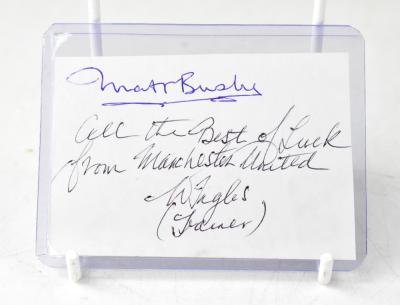 Matt Busby
All the Best of Luck
from Manchester United
W Inglis
(Trainer)